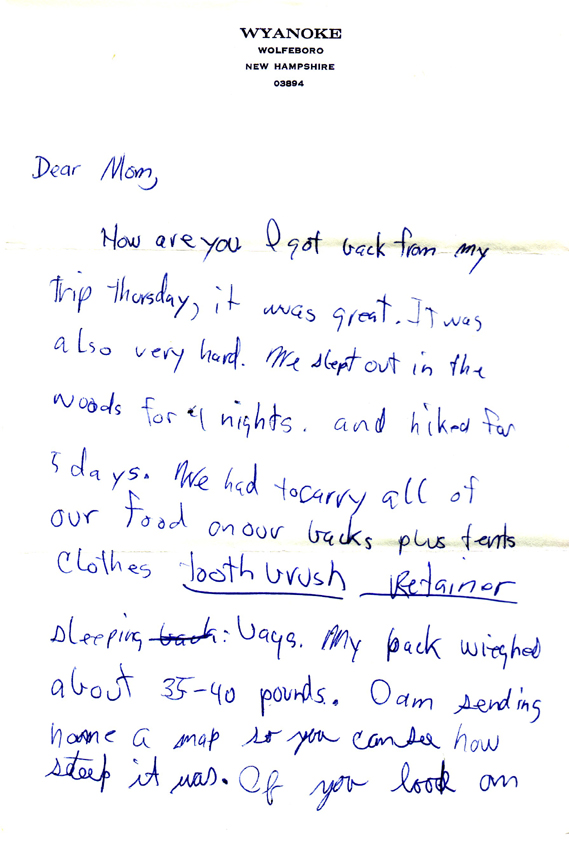 WYANOKE
WOLFEBORO
NEW HAMPSHIRE
03894
Dear Mom,
How are you I got back from my
trip thursday, it was great. It was
also very hard. We slept out in the
woods for 4 nights. and hiked for
5 days. We had to carry all of
our food on our backs plus tents
Clothes tooth brush Retainer
sleeping back: bags. My pack wieghed
about 35-40 pounds. I am sending
home a map so you can see how
steep it was. If you look on